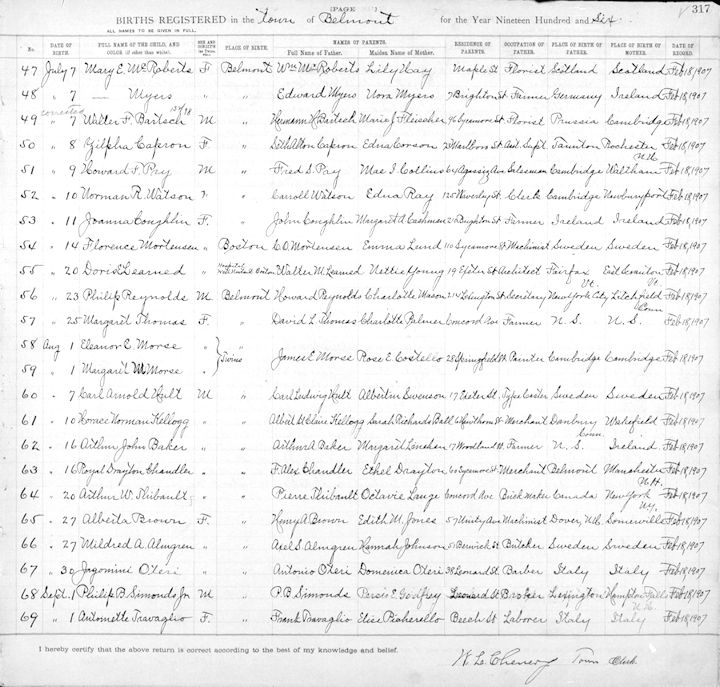 [PAGE ] 317
BIRTHS REGISTERED in the Town of Belmont for the Year Nineteen Hundred and Six.
ALL NAMES TO BE GIVEN IN FULL.
No. DATE OF BIRTH. FULL NAME OF THE CHILD, AND COLOR (if other than white). SEX AND CONDITION PLACE OF BIRTH. NAMES OF PARENTS. Full Name of Father. Maiden Name of Mother. RESIDENCE OF PARENTS. OCCUPATION OF FATHER. PLACE OF BIRTH OF FATHER. PLACE OF BIRTH OF MOTHER. DATE OF RECORD.
47 July 7 Mary E. McRoberts F Belmont Wm McRoberts Lily Hay Maple St Florist Scotland Scotland Feb 18, 1907
48 " 7 — Myers " " Edward Myers Nora Myers Brighton St Farmer Germany Ireland Feb 18, 1907
corrected
49 " 7 Walter F. Bartsch M " Hermann H Bartsch Marie J Fleischer Sycamore St Florist Prussia Cambridge Feb 18, 1907
50 " 8 Zilpha Capron F " Capron Edna Corson Marlboro St Taunton Rochester N.H. Feb 18, 1907
51 " 9 Howard S. Pay M " Fred S. Pay Mae I. Collins 64 Agassiz Ave Salesman Cambridge Waltham Feb 18, 1907
52 " 10 Norman R. Watson " " Carroll Watson Edna Ray 125 Waverley St. Clerk Cambridge Newburyport Feb 18, 1907
53 " 11 Joanna Coughlin F. " John Coughlin Margaret A Cashman Brighton St Farmer Ireland Ireland Feb 18, 1907
54 " 14 Florence Mortensen " Boston C.O. Mortensen Emma Lund 110 Sycamore St Machinist Sweden Sweden Feb 18, 1907
55 " 20 Doris Learned " Boston Walter M. Learned Nettie Young 19 Exeter St Architect Fairfax Vt. East Vt. Feb 18, 1907
56 " 23 Philip Reynolds M Belmont Howard Reynolds Charlotte Mason 214 Lexington St Secretary New York City Litchfield Conn Feb 18, 1907
57 " 25 Margaret Thomas F. " David L. Thomas Charlotte Palmer Concord Ave Farmer N.S. N.S. Feb 18, 1907
58 Aug 1 Eleanor E. Morse " " Twins James E Morse Rose E. Costello 28 Springfield St Painter Cambridge Cambridge Feb 18, 1907
59 " 1 Margaret M Morse "
60 " 7 Carl Arnold Hult M " Carl Ludwig Hult Albertin Swenson 17 Exeter St Type Caster Sweden Sweden Feb 18, 1907
61 " 10 Horace Norman Kellogg " " Albert St Clair Kellogg Sarah Richards Ball Hawthorn St Merchant Danbury Conn. Wakefield Feb 18, 1907
62 " 16 Arthur John Baker " " Arthur A Baker Margaret Linehan 17 Woodland St. Farmer N.S. Ireland Feb 18, 1907
63 " 16 Royal Drayton Chandler " " F. Alex Chandler Ethel Drayton Sycamore St Merchant Belmont Manchester N.H. Feb 18, 1907
64 " 20 Arthur W. Thibault " " Pierre Thibault Octavie Lauge Concord Ave Brick Maker Canada New York N.Y. Feb 18, 1907
65 " 27 Alberta Brown F. " Henry A Brown Edith M. Jones 57 Unity Ave Machinist Dover, N.H. Somerville Feb 18, 1907
66 " 27 Mildred A. Almgren " " Axel S. Almgren Hannah Johnson 51 Berwick St Butcher Sweden Sweden Feb 18, 1907
67 " 30 Jagomini Oteri " " Antonio Oteri Domenica Oteri 38 Leonard St. Barber Italy Italy Feb 18, 1907
68 Sept. 1 Philip B Simonds Jr. M " P.B Simonds Persis E. Godfrey Leonard St Broker Lexington Hampton Falls N.H. Feb 18, 1907
69 " 1 Antonette Travaglio F. " Frank Travaglio Elise Picherello Beech St Laborer Italy Italy Feb 18, 1907
I hereby certify that the above return is correct according to the best of my knowledge and belief.
W. L. Chenery Town Clerk.